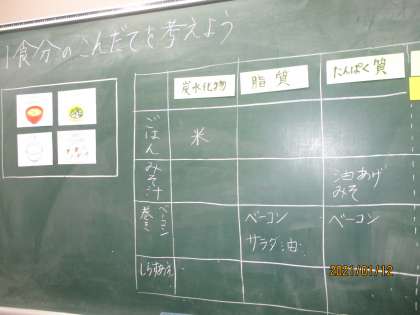 1食分のこんだてを考えよう
炭水化物 脂質 たんぱく質
ごはん 米
みそ汁 油あげ
みそ
ベーコン巻き ベーコン ベーコン
サラダ油
しらあえ
2021/01/12